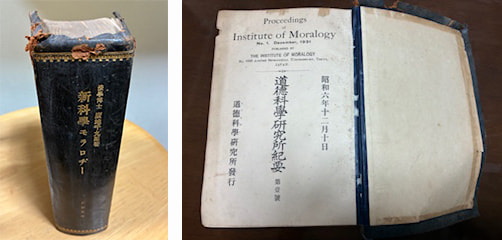 法學博士 廣池千九郎著
新科學モラロヂー
Proceedings
of
Institute of Moralogy
No. 1, December, 1931
PUBLISHED BY
THE INSTITUTE OF MORALOGY
JAPAN.
昭和六年十二月十日
道德科學研究所紀要 第壹號
道德科學研究所發行